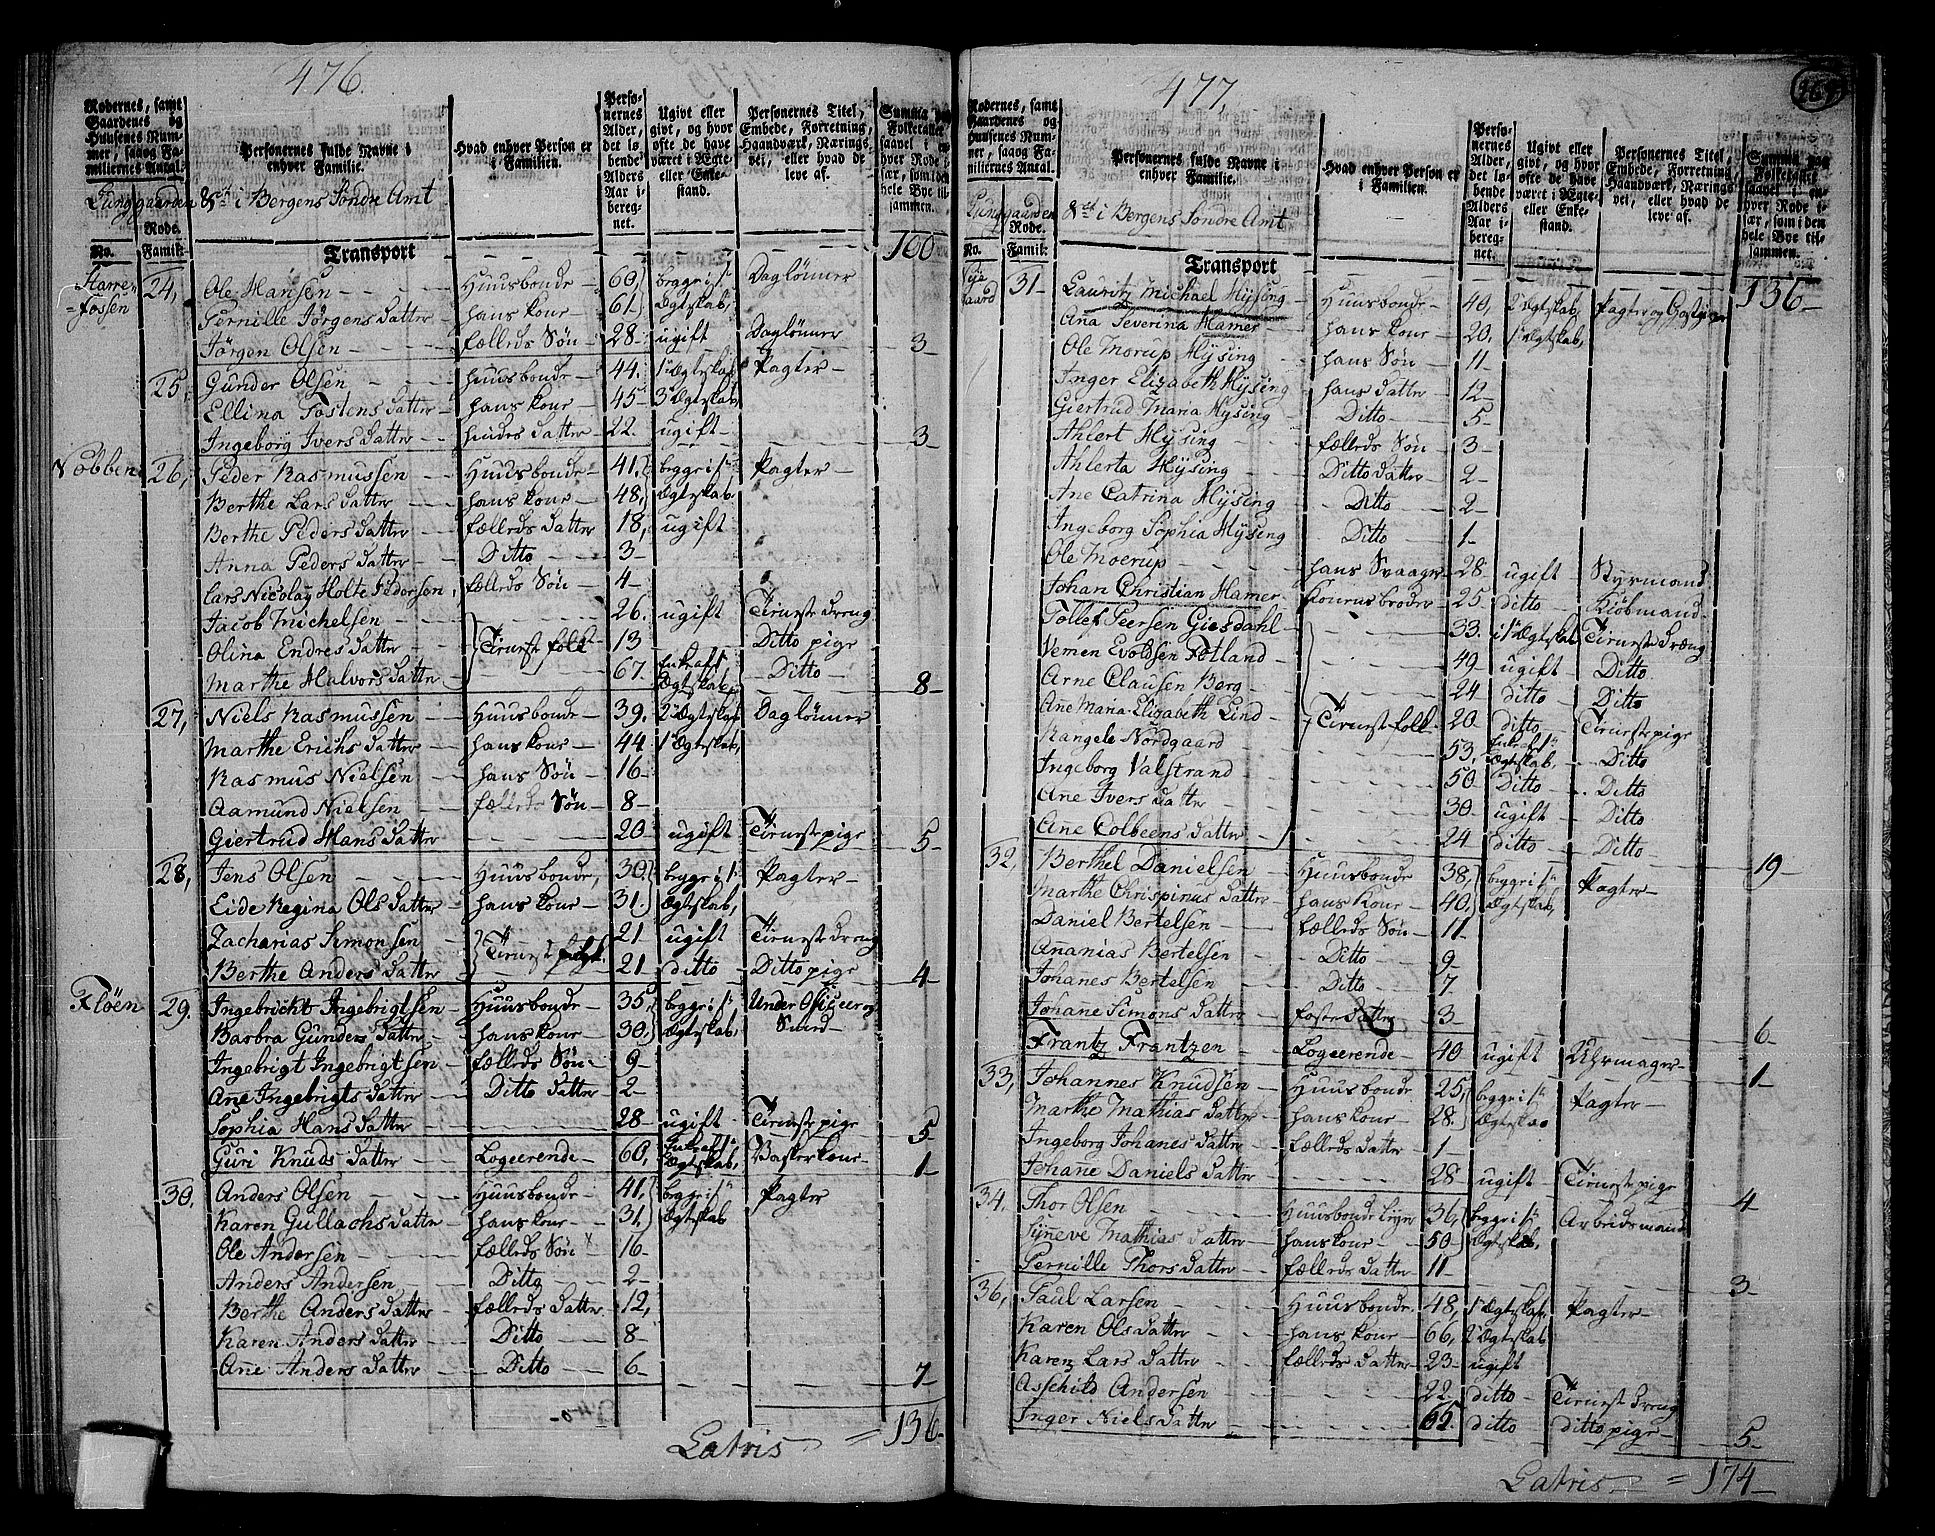 476.
Rodernes, samt Gaardenes og Huusenes Nummer, saaog Familiernes Antal.
Personernes fulde Navne i enhver Familie.
Hvad enhver Person er i Familien.
Personernes Alder, det løbende Alders Aar iberegnet.
Ugivt eller givt, og hvor ofte de have været i Ægte- eller Enkestand.
Personernes Titel, Embede, Forretning, Haandværk, Nærings vei, eller hvad de leve af.
Summa paa Folketallet
Lunggaarden &ct i Bergens Söndre Amt
Rode.
No. Famil:
Transport 100
Harrefossen 24, Ole Hansen Huusbonde 60, begge i 1te Daglönner
Pernille Jörgens datter hans kone 61. Ægtskab,
Jörgen Olsen fælleds Sön 28 ugift Daglönner 3
25, Gunder Olsen huusbonde 44. 1te Ægtskab Pagter
Ellina Tostens datter hans kone 45 3 Ægtskab
Ingeborg Ivers datter hendes datter 22. ugift 3
Nobben 26, Peder Rasmussen Huusbonde 41. begge i 1te Pagter
Berthe Lars datter hans kone 48, Ægtskab
Berthe Peders datter fælleds datter 18, ugift
Anna Peders datter Ditto 3
Lars Nicolay Holte Pedersen fælleds Sön 4
Jacob Michelsen 26. ugift Tieneste dreng
Olina Endres datter Tieneste folk 13 Ditto pige
Marthe Halvors datter 67. Enke af 1te Ægtskab, Ditto 8
27, Niels Rasmussen Huusbonde 39. 2det Ægtskab Daglönner
Marthe Erichs datter hans kone 44 1te Ægtskab,
Rasmus Nielsen hans Sön 16
Aamund Nielsen fælleds Sön 8
Giertrud Hans datter 20 ugift Tieneste pige 5
28, Jens Olsen Huusbonde, 30, begge i 1te Pagter
Eide Regina Ols datter hans kone 31. Ægtskab,
Zacharias Simonsen Tieneste folk. 21 ugift Tieneste dreng
Berthe Anders datter 21. ditto Ditto pige 4
Flöen 29. Ingebricht Ingebrigtsen Huusbonde 35, begge i 1te Under Officeer og
Barbra Gunders datter hans kone 30, Ægtskab. Smed
Ingebrigt Ingebrigtsen fælleds Sön 9
Ane Ingebrigts datter Ditto datter 2
Sophia Hans datter 28 ugift Tieneste pige 5
Guri Knuds datter Logeerende 60, Enke af 1te Ægtskab, Vasker kone 1
30, Anders Olsen Huusbonde 41, begge i 1te Pagter
Karen Gullachs datter hans kone 31. Ægtskab
Ole Andersen fælleds Sön x 16
Anders Andersen Ditto 2
Berthe Anders datter fælleds datter 12,
Karen Anders datter Ditto 8
Ane Anders datter Ditto 6 7
Latris = 136
477,
Rodernes, samt Gaardenes og Huusenes Nummer, saaog Familiernes Antal.
Personernes fulde Navne i enhver Familie.
Hvad enhver Person er i Familien.
Personernes Alder, det løbende Alders Aar iberegnet.
Ugivt eller givt, og hvor ofte de have været i Ægte- eller Enkestand.
Personernes Titel, Embede, Forretning, Haandværk, Nærings vei, eller hvad de leve af.
Summa paa Folketallet saavel i enhver Rode især, som i den hele Bye tilsammen.
Lunggaarden &ct i Bergens Söndre Amt
Rode.
No. Famil:
Transport 136
31 Lauritz Michael Hÿsing Huusbonde 40, 2 Ægtskab, Pagter og
Ana Severina Hamer hans kone 20. 1te Ægtskab,
Ole Morup Hÿsing hans Sön 11
Inger Elizabeth Hÿsing hans datter 12
Giertrud Maria Hÿsing Ditto 5
Ahlert Hÿsing fælleds Sön 3
Ahlerta Hÿsing Ditto datter 2
Ane Catrina Hÿsing Ditto 2
Ingeborg Sophia Hÿsing Ditto 1
Ole Moerup hans Svaager 28 ugift Styrmand
Johan Christian Hamer Konens broder 25. ditto Kiöbmand
Tollef Peersen Giesdahl 33. i 1te Ægtskab Tieneste Dræng
Vemen Evoldsen Fotland 49 ugift Ditto
Arne Clausen Berg 24 ditto Ditto
Ane Maria Elizabeth Lind Tieneste folk 20 ditto Tieneste pige
Rangele Nordgaard 53, Enke af 1te Ægtskab, Ditto
Ingeborg Valstrand 50 Ditto Ditto
Ane Ivers datter 30 ugift Ditto
Ane Colbeens datter 24 ditto Ditto 19
32, Berthel Danielsen Huusbonde 38, begge i 1te Pagter
Marthe Chrispinus datter hans kone 40, Ægtskab,
Daniel Bertelsen fælleds Sön 11
Ananias Bertelsen Ditto 9
Johanes Bertelsen Ditto 7
Johane Simons datter foster datter 3 6
Frantz Frantzen Logeerende 40 ugift Uhrmager 1
33, Johannes Knudsen Huusbonde 25, begge i 1te Pagter
Marthe Mathias datter hans kone 28. Ægtskab
Ingeborg Johanes datter fælleds datter 1
Johane Daniels datter 28 ugift Tieneste pige 4
34. Thor Olsen Huusbonde 36, begge i 1te Arbeidsmand
Syneve Mathias datter hans kone 50 Ægtskab,
Pernille Thors datter fælleds datter 11 3
36, Paul Larsen Huusbonde 48, 1te Ægtskab Pagter
Karen Ols datter hans kone 66, 2 Ægtskab
Karen Lars datter fælleds datter 23 ugift
Asschild Andersen 22. ditto Tieneste Dreng
Inger Niels datter 65. ditto ditto pige 5
Latris = 174